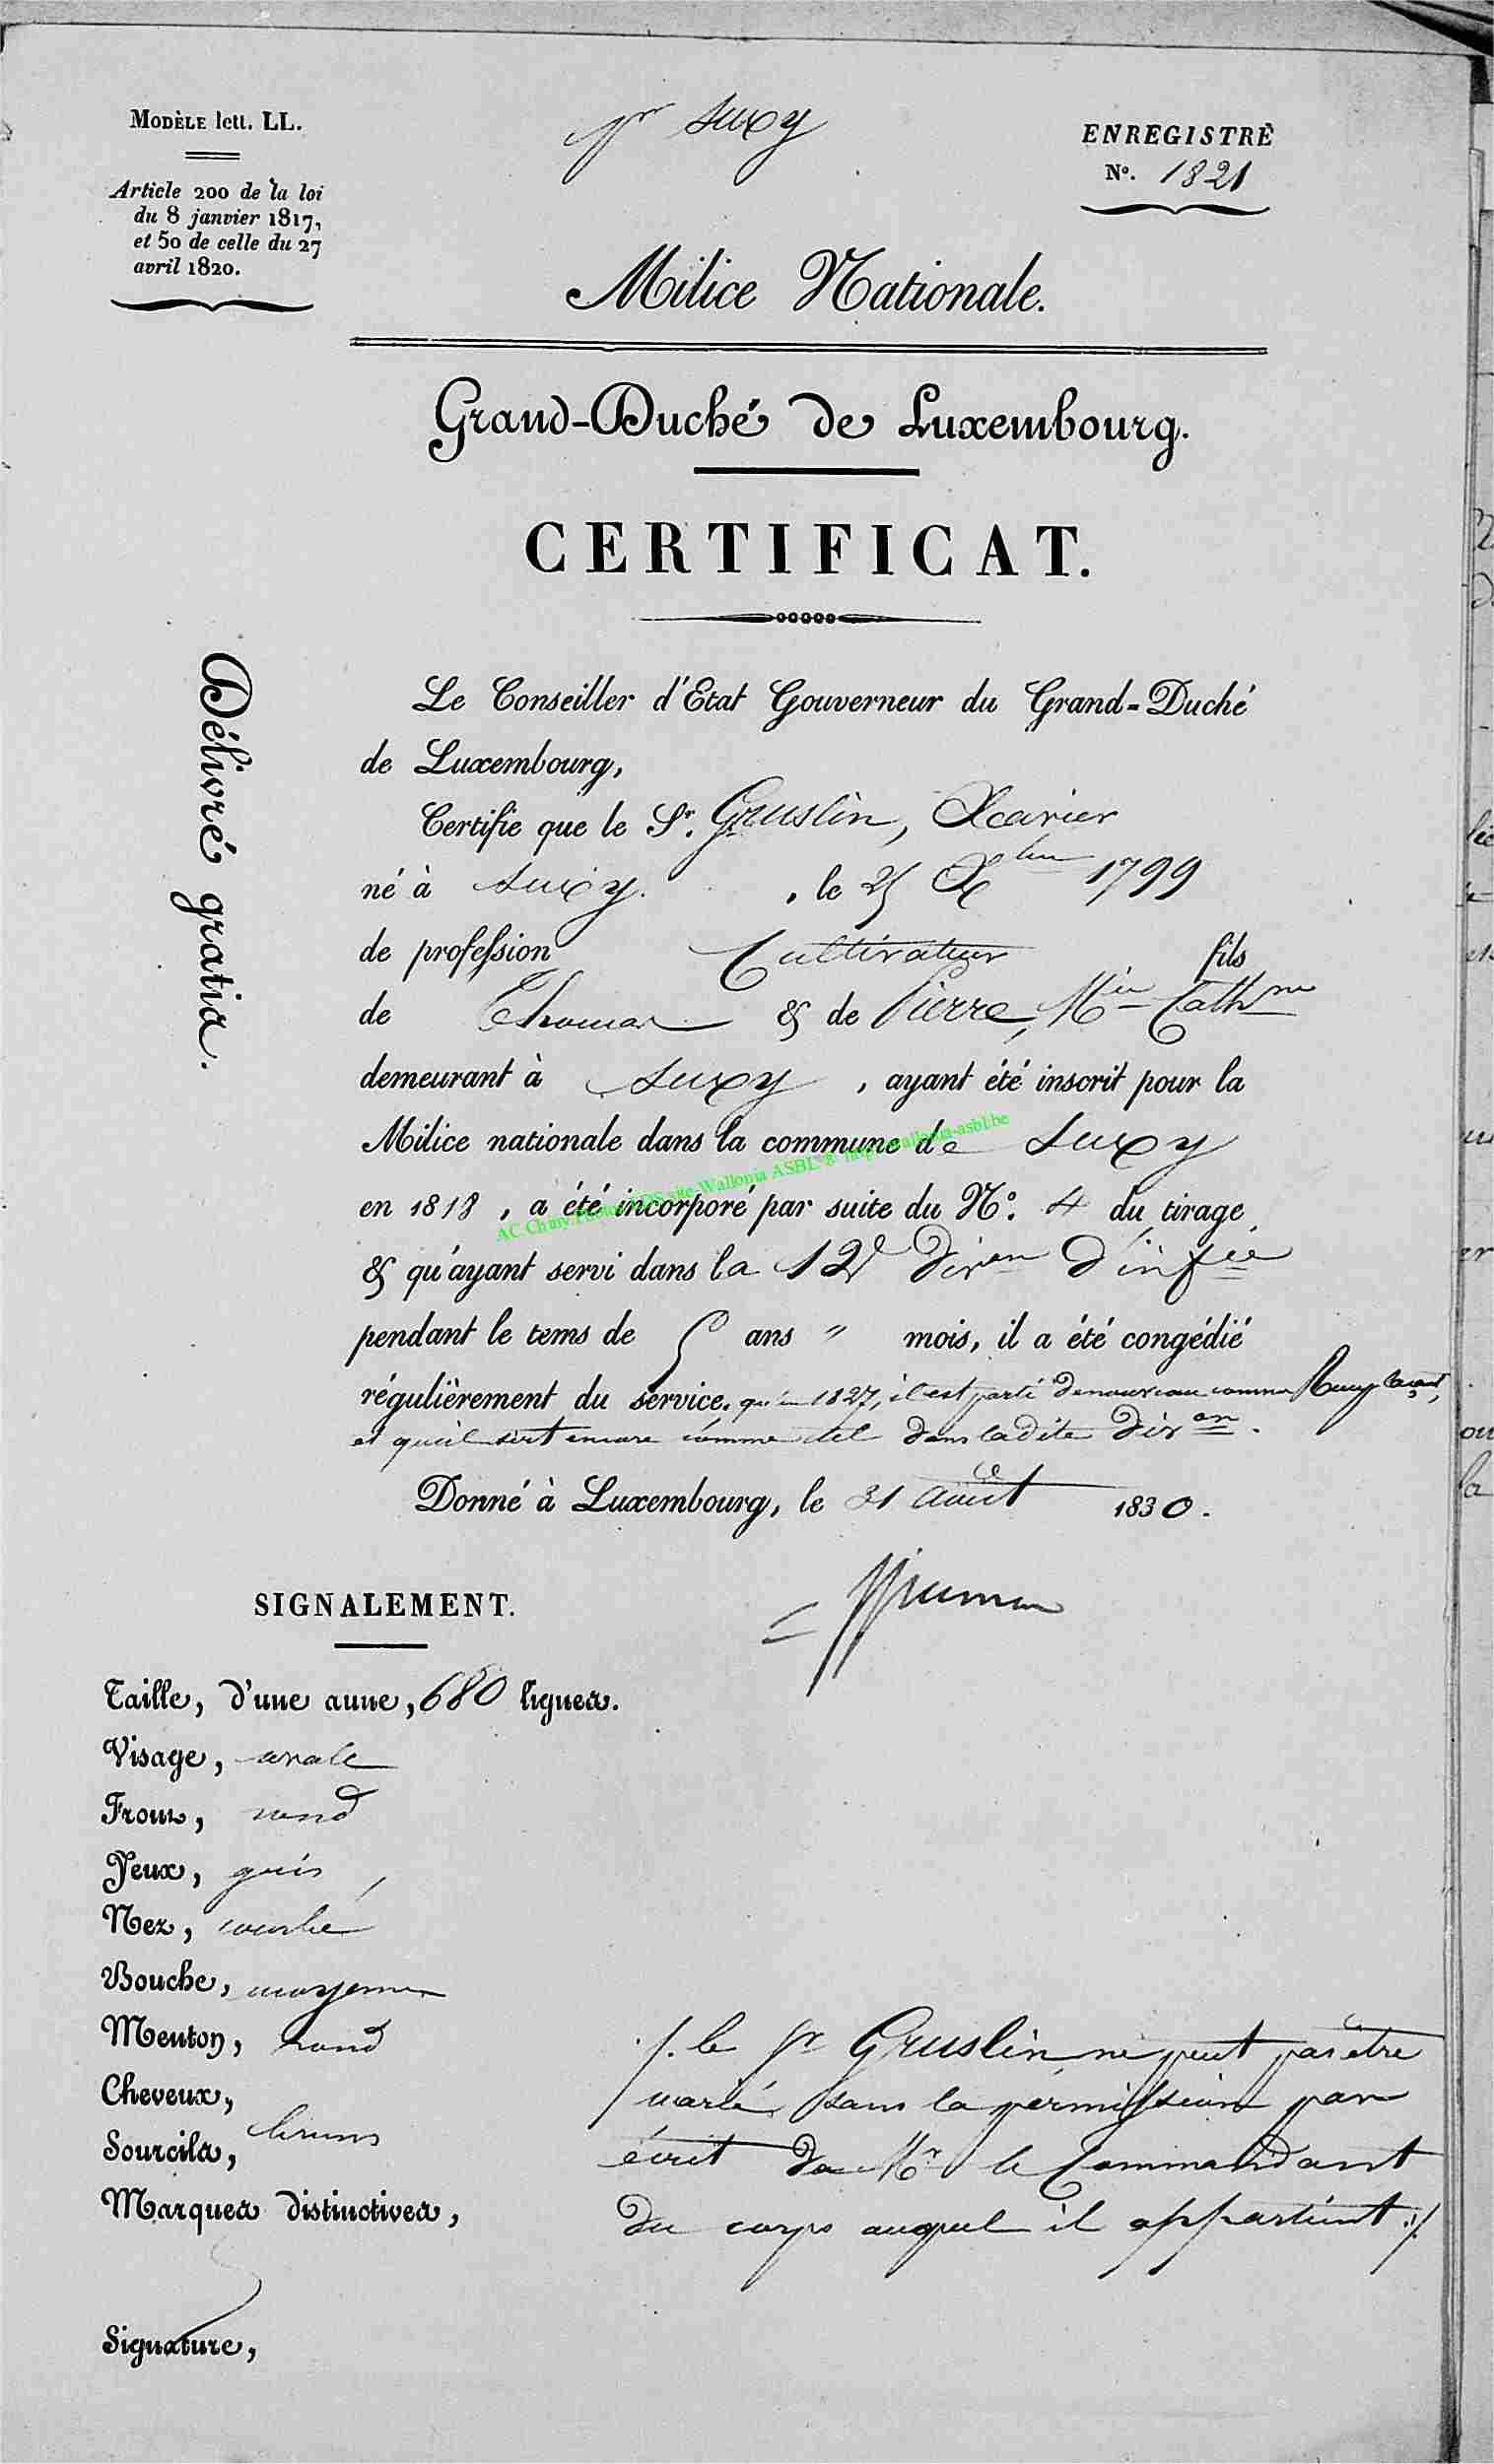 MODÈLE lett. LL.
Article 200 de la loi
du 8 janvier 1817,
et 50 de celle du 27
avril 1820.
pr Suxy
ENREGISTRÉ
N°. 1821
Milice Nationale.
Grand-Duché de Luxembourg.
CERTIFICAT.
Délivré gratis.
Le Conseiller d'Etat Gouverneur du Grand-Duché
de Luxembourg,
Certifie que le Sr. Gruslin, Xavier
né à Suxy. , le 25 Xbre 1799
de profession Cultivateur fils
de Thomas & de Pierre, Mie Cathne
demeurant à Suxy , ayant été inscrit pour la
Milice nationale dans la commune de Suxy
en 1818 , a été incorporé par suite du N°. 4 du tirage
& qu'ayant servi dans la 12e Divon d'infie
pendant le tems de 5 ans " mois, il a été congédié
régulièrement du service, qu'en 1827, il est parti de nouveau comme Remplaçant,
et qu'il sert encore comme tel dans ladite Divon.
Donné à Luxembourg, le 31 août 1830.
AC.Chiny.Photos site Wallonia ASBL © http://wallonia-asbl.be
SIGNALEMENT.
Taille, d'une aune, 680 lignes.
Visage, ovale
Front, rond
Yeux, gris
Nez, courbé
Bouche, moyenne
Menton, rond
Cheveux,
bruns
Sourcils,
Marques distinctives,
Signature,
/. le Sr Gruslin ne peut pas être
marié sans la permission par
écrit de Mr le Commandant
du corps auquel il appartient ./.